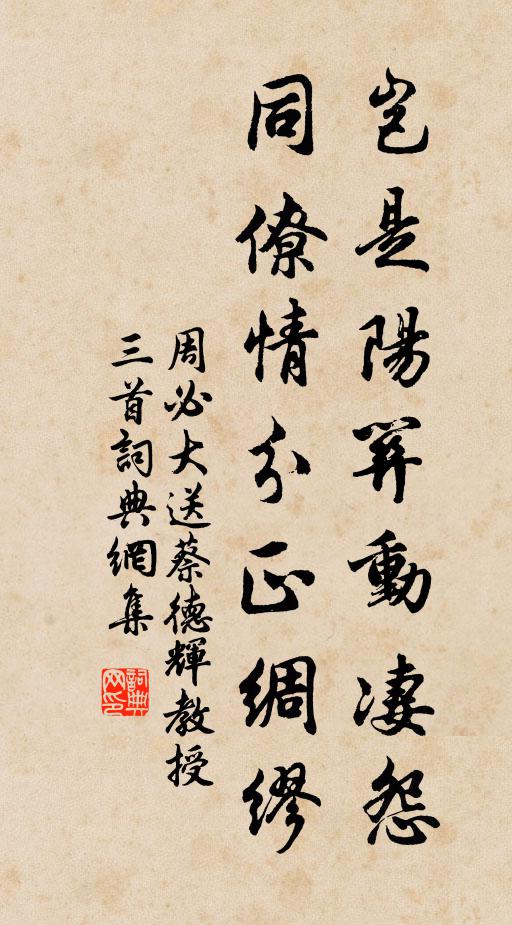 豈是陽關動凄怨
同僚情分正綢繆
周必大送蔡德輝教授
三首詞典網集
詞典
网印